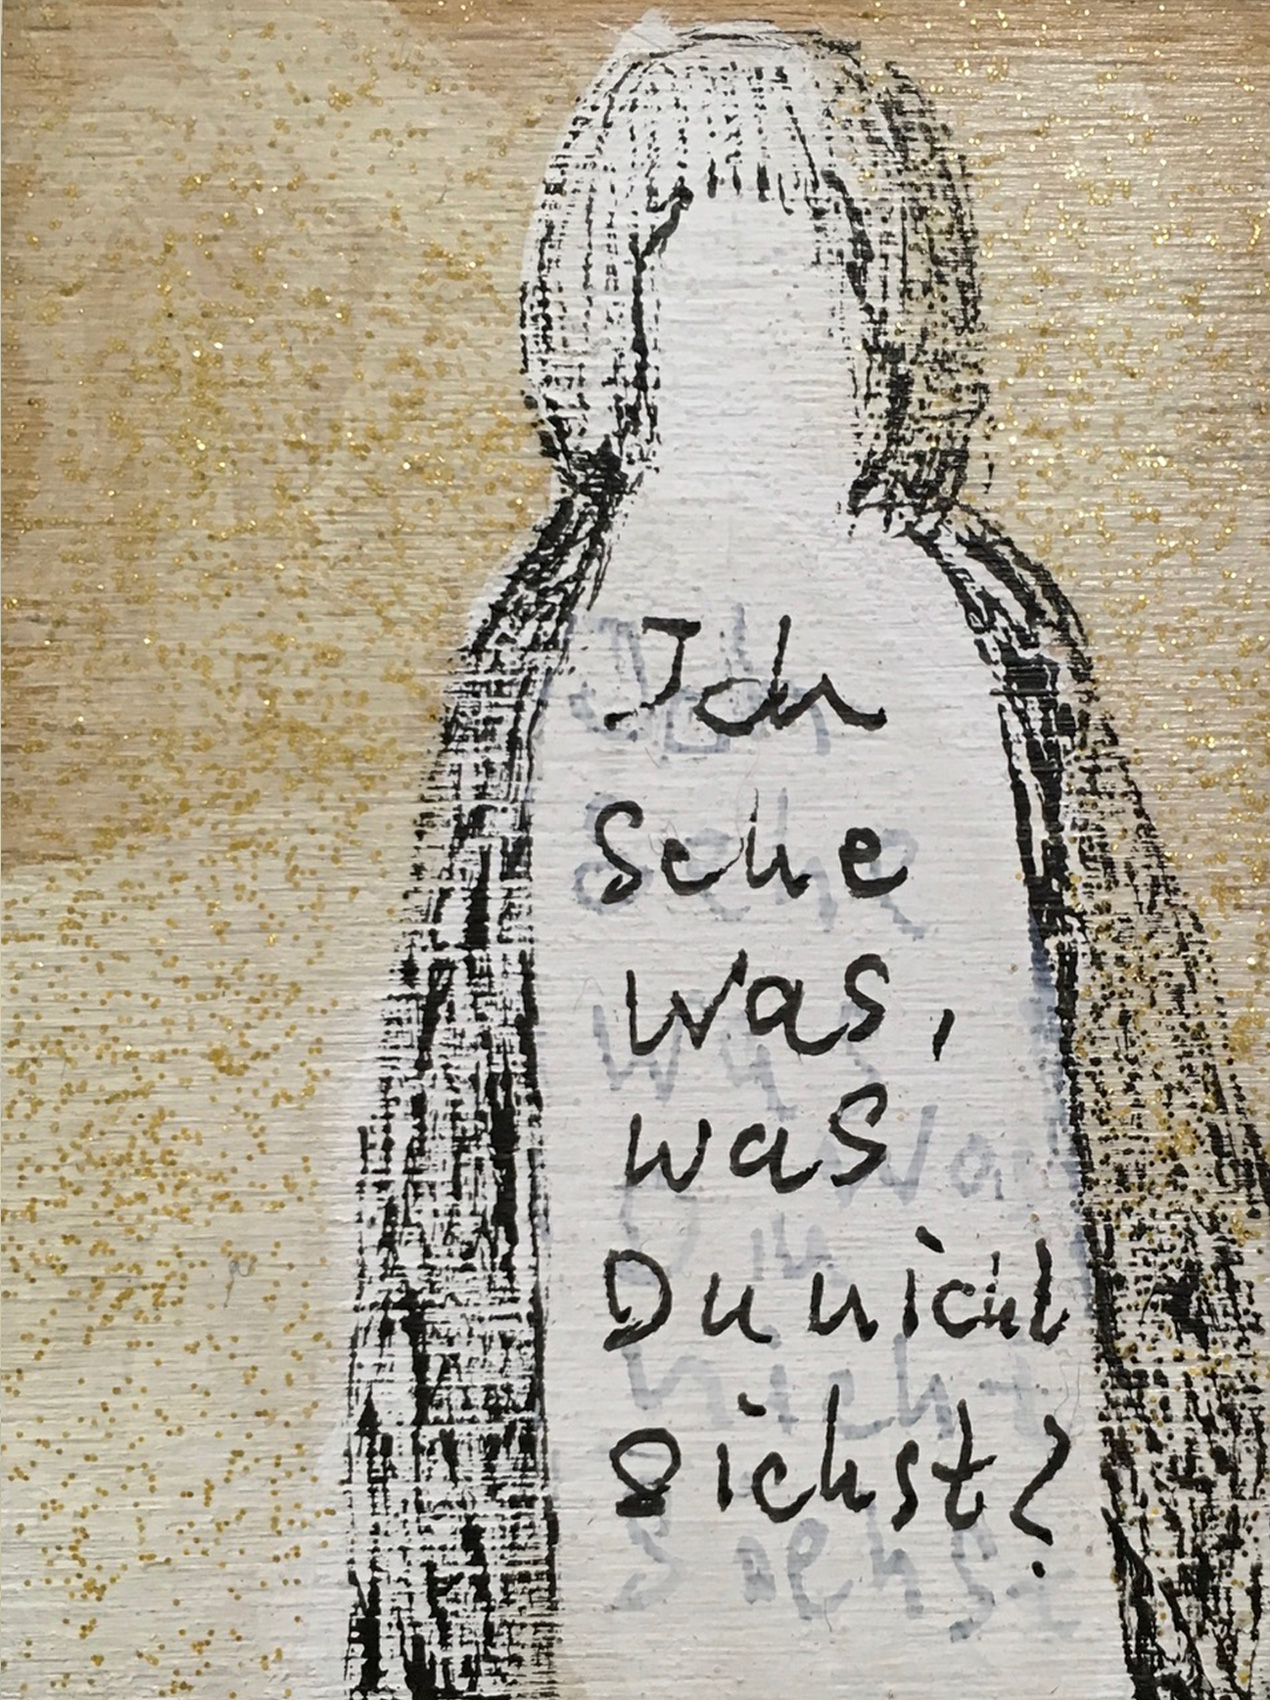 Ich
sehe
was,
was
Du nicht
siehst?